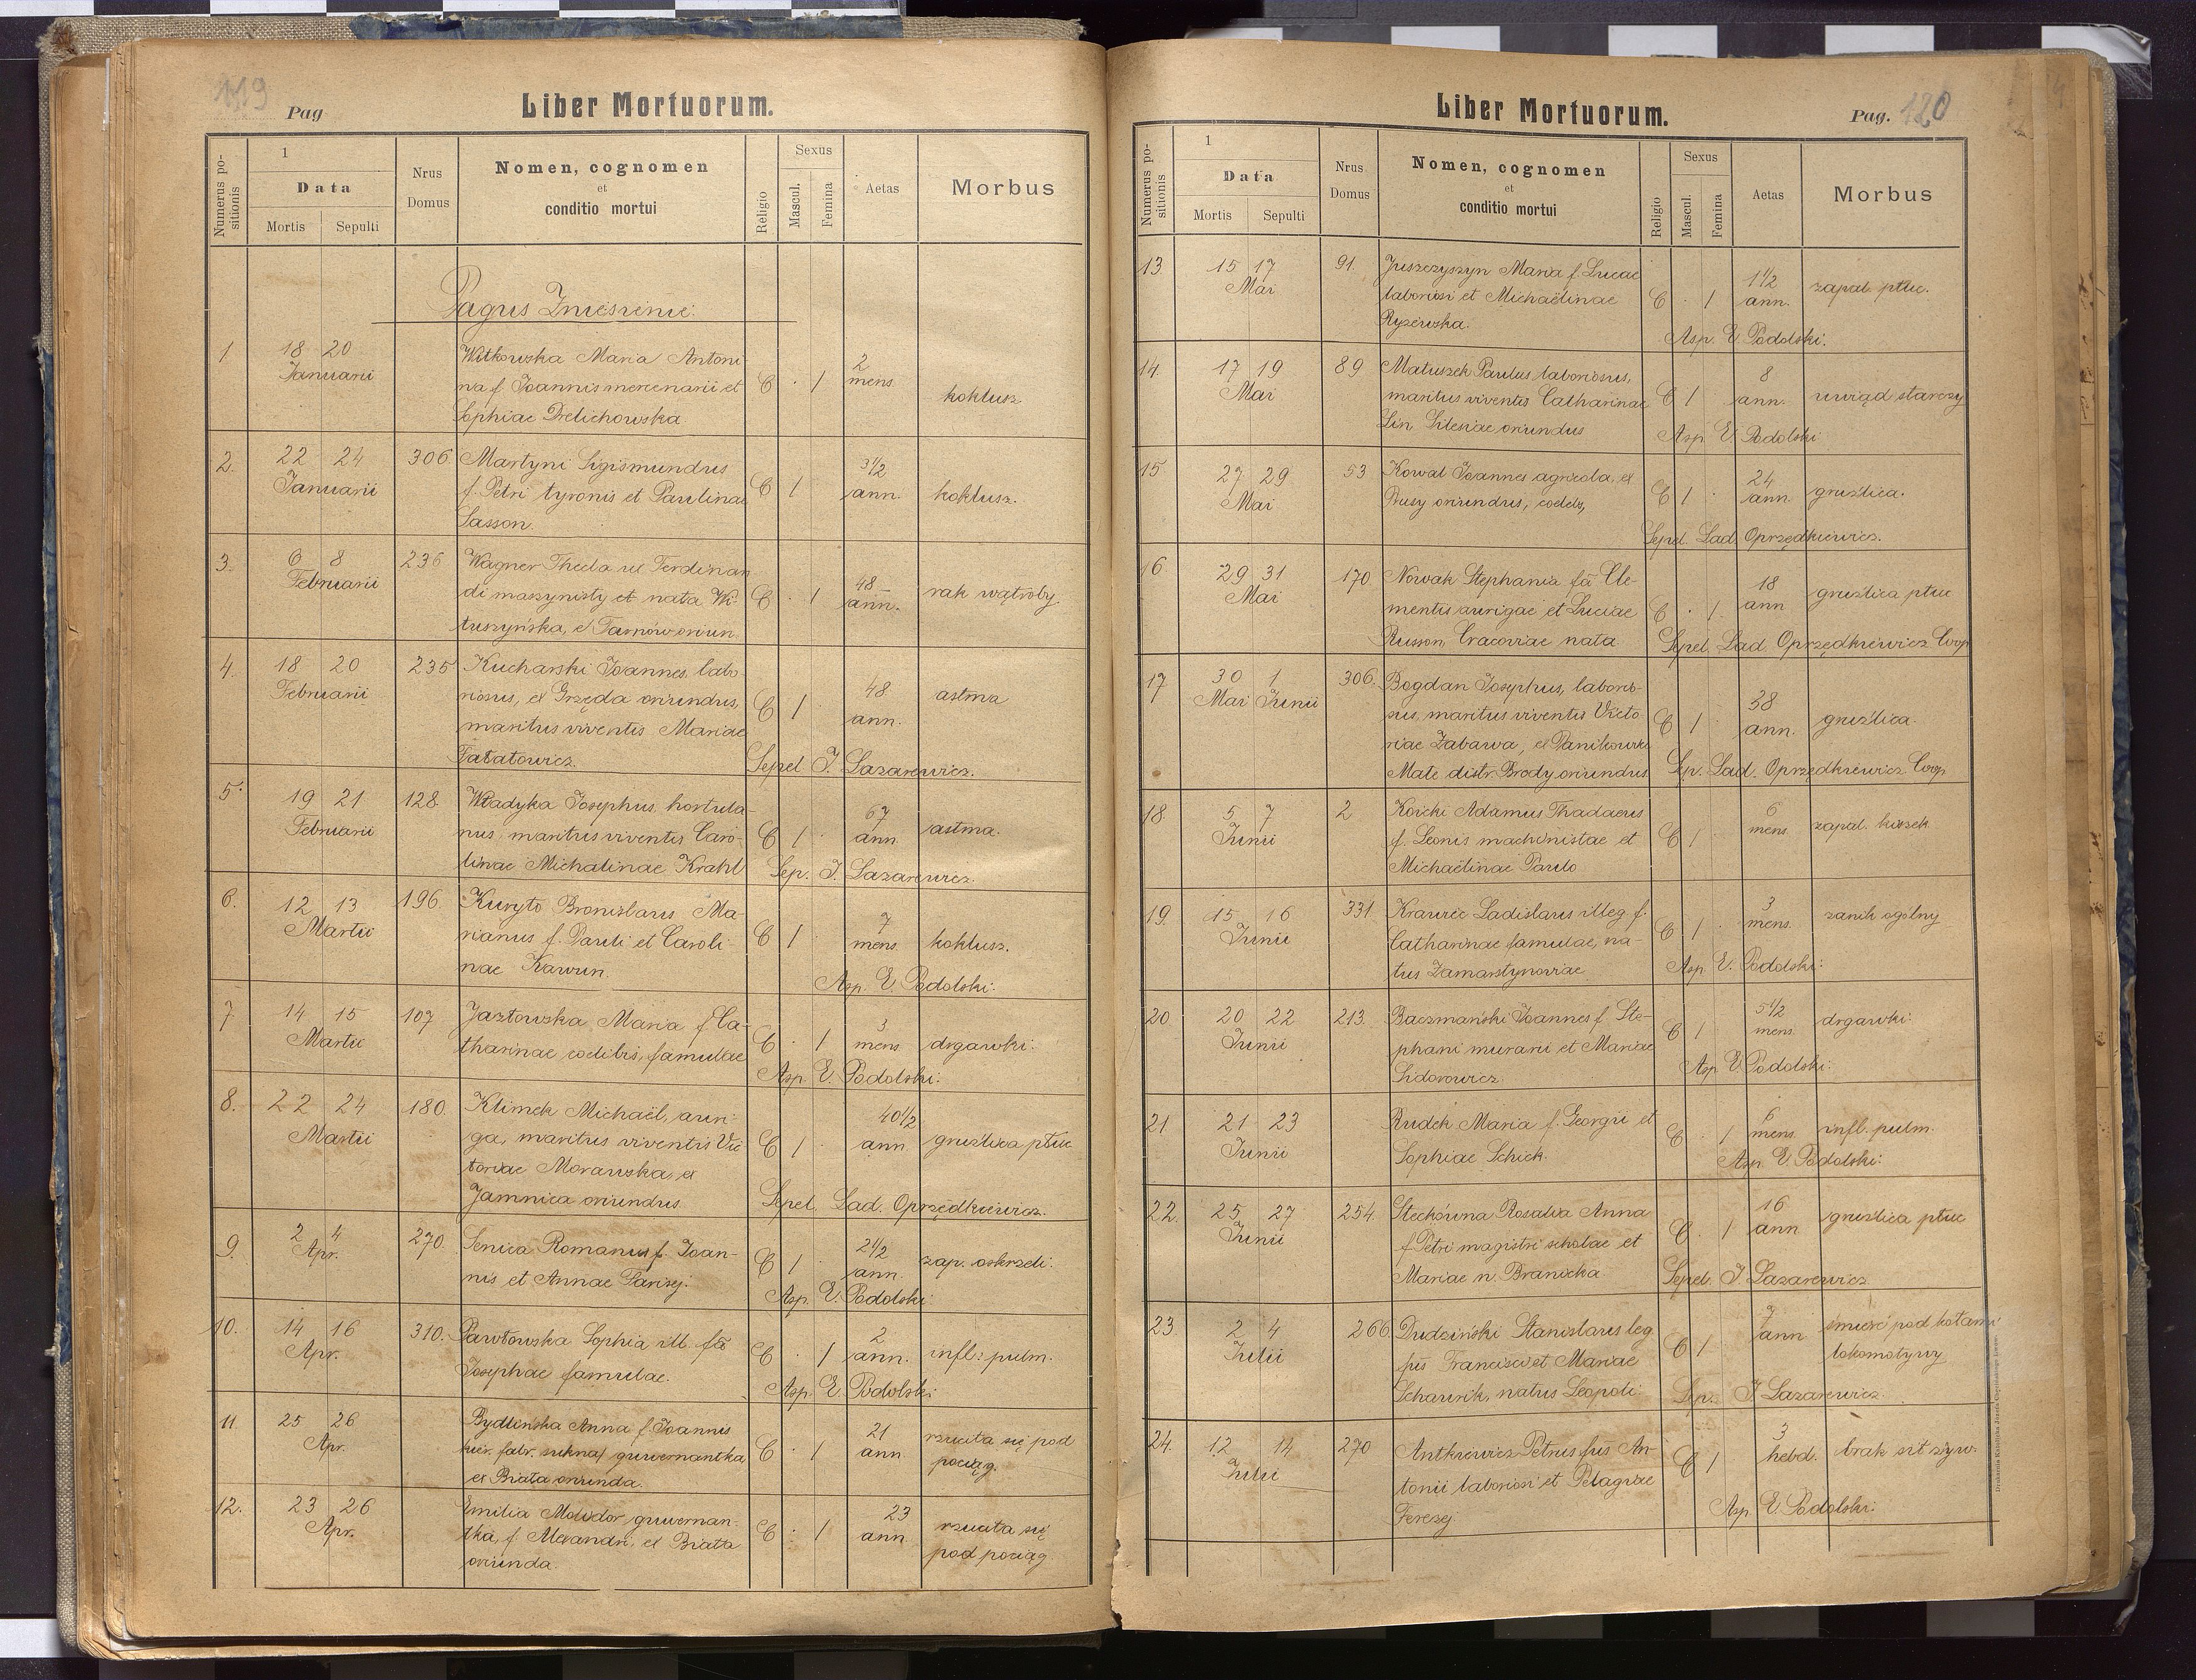 119
Pag
Liber Mortuorum.
Numerus positionis
1
Data
Mortis Sepulti
Nrus Domus
Nomen, cognomen
et
conditio mortui
Religio
Sexus
Mascul. Femina
Aetas
Morbus
Pagus Zniesienie.
1 18 20 Witkowska Maria Antoni 2
Januarii na f. Joannis mercenarii et C · 1 mens. koklusz.
Sophiae Drelichowska
2. 22 24 306. Martyni Sigismundus 3 1/2
Januarii f. Petri tyronis et Paulinae C 1 ann. koklusz.
Sasson.
3. 6 8 236 Wagner Thecla ux Ferdinan 48
Februarii di maszynisty et nata Wi- C · 1 ann. rak wątroby
tuszyńska, ex Tarnów oriun.
4. 18 20 235 Kucharski Joannes, labo 48 astma
Februarii riosus, ex Grzęda oriundus, C 1 · ann.
maritus viventis Mariae
Fałatowicz. Sepel J. Lazarewicz.
5. 19 21 128. Władyka Josephus, hortula- 67
Februarii nus, maritus viventis Caro- C 1 · ann astma.
linae Michalinae Krahl Sep. J. Lazarewicz.
6. 12 13 196. Kuryło Bronislaus Ma- 7
Martii rianus f. Pauli et Caroli C 1 mens. koklusz.
nae Kawun. Asp. E. Podolski.
7 14 15 107 Jazłowska Maria f. Ca- 3
Martii tharinae coelibis, famulae C · 1 mens. drgawki.
Asp. E. Podolski.
8. 22 24 180. Klimek Michaël, auri- 40 1/2
Martii ga, maritus viventis Vic C 1 · ann. gruźlica płuc
toriae Morawska, ex
Jamnica oriundus. Sepel. Lad. Oprzędkiewicz.
9. 2 4 270. Senica Romanus f. Joan- 2 1/2
Apr. nis et Annae Parisej. C 1 ann. zap. oskrzeli.
Asp. E. Podolski.
10. 14 16 310. Pawłowska Sophia ill. fa 2
Apr. Josephae famulae. C · 1 ann. infl. pulm.
Asp. E. Podolski.
11 25 26 Bydlińska Anna f. Joannis 21 rzuciła się pod
Apr. kier. fabr. sukna, guwernantka C · 1 ann. pociąg.
ex Biała oriunda.
12. 23 26 Emilia Molodor guwernan- 23 rzuciła się
Apr. tka, f. Alexandri, ex Biała C · 1 ann pod pociąg.
oriunda.
Liber Mortuorum.
Pag. 120
Numerus positionis
1
Data
Mortis Sepulti
Nrus Domus
Nomen, cognomen
et
conditio mortui
Religio
Sexus
Mascul. Femina
Aetas
Morbus
13. 15 17 91. Juszczyszyn Maria f. Lucae 1 1/2 zapal. płuc.
Mai laboriosi et Michaëlinae C · 1 ann.
Ryzewska. Asp. E. Podolski.
14. 17 19 89 Matuszek Paulus laboriosus, 8
Mai maritus viventis Catharinae C 1 ann. uwiąd starczy
Lin Silesiae oriundus Asp. E. Podolski
15 27 29 53 Kowal Joannes agricola, ex 24
Mai Rusy oriundus, coelebs, C 1 · ann. gruźlica.
Sepel. Lad Oprzędkiewicz.
16 29 31 170 Nowak Stephania fa Cle- 18 gruźlica płuc
Mai mentis aurigae et Luciae C · 1 ann
Russon, Cracoviae nata. Sepel. Lad. Oprzędkiewicz Coop
17 30 1 306. Bogdan Josephus, laborio- 38
Mai Junii sus, maritus viventis Victo C 1 · ann. gruźlica.
riae Zabawa, ex Ponikowica
Mała distr. Brody oriundus Sep. Lad. Oprzędkiewicz Coop
18 5 7 2 Koicki Adamus Thadaeus 6 zapal. kiszek
Junii f. Leonis machinistae et C 1 mens.
Michaëlinae Paulo
19. 15 16 331. Krawiec Ladislaus illeg f. 3 zanik ogólny
Junii Catharinae famulae, na- C 1 mens.
tus Zamarstynoviae Asp. E. Podolski.
20 20 22 213. Baczmański Joannes f. Ste- 5 1/2 drgawki.
Junii phani murarii et Mariae C 1 mens.
Sidorowicz. Asp E. Podolski.
21 21 23 Rudek Maria f. Georgii et 6 infl. pulm.
Junii Sophiae Schick. C · 1 mens
Asp. E. Podolski.
22. 25 27 254. Stechówna Rosalia Anna 16 gruźlica płuc
Junii f. Petri magistri scholae et C · 1 ann
Mariae n. Branicka Sepel. J. Lazarewicz
23. 2 4 266. Dudziński Stanislaus leg 7 śmierć pod kołami
Julii fus Francisci et Mariae C 1 ann lokomotywy
Schawrik, natus Leopoli. Sep. J Lazarewicz.
24. 12 14 270 Antkiewicz Petrus fus An- 3 brak sił żyw.
Julii tonii laboriosi et Pelagiae C 1 hebd.
Ferezej Asp E. Podolski.